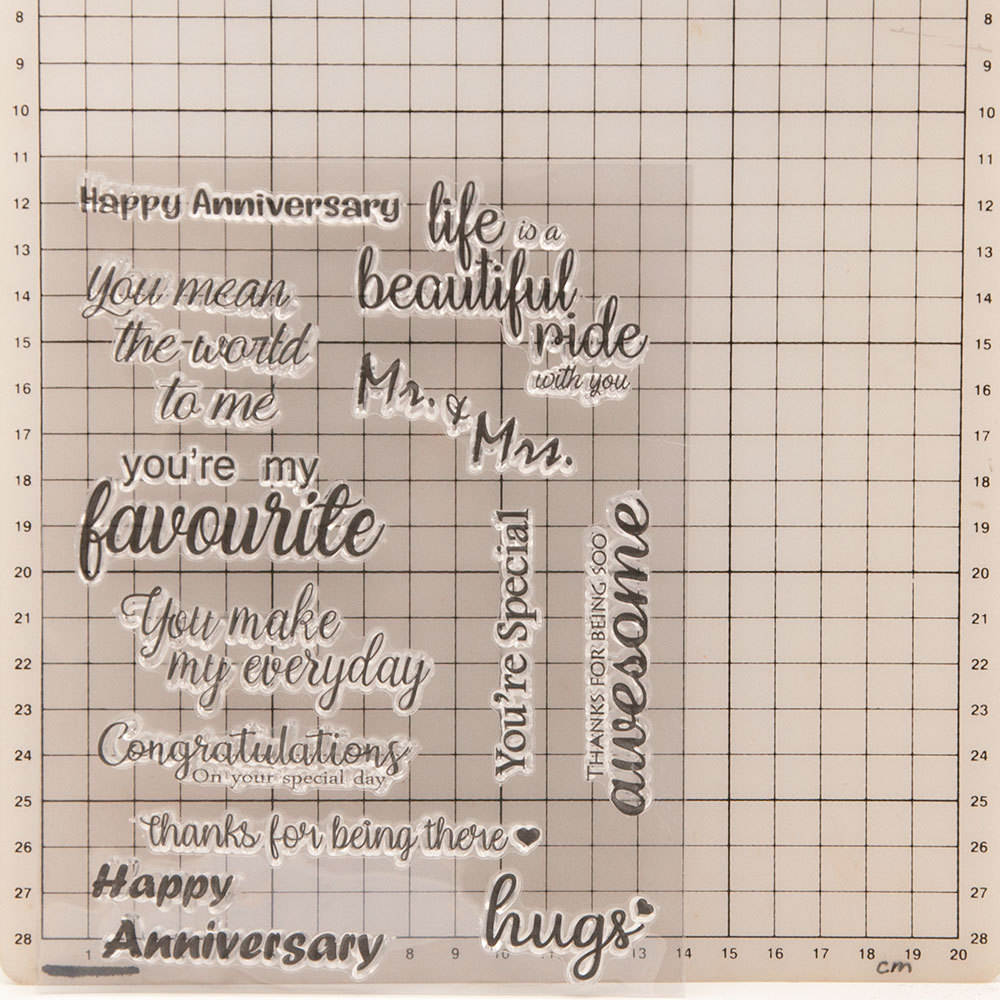 8
8
9
9
10
10
11
11
12
12
13
13
14
14
15
15
16
16
17
17
18
18
19
19
20
20
21
21
22
22
23
23
24
24
25
25
26
26
27
27
28
28
Happy Anniversary
life is a
beautiful
ride
with you
You mean
the world
to me
Mr. &
Mrs.
you're my
favourite
You're Special
THANKS FOR BEING SOO
awesome
You make
my everyday
Congratulations
On your special day
thanks for being there
Happy
Anniversary
hugs
1 8 9 10 11 12 13 14 15 16 17 18 19 20
cm